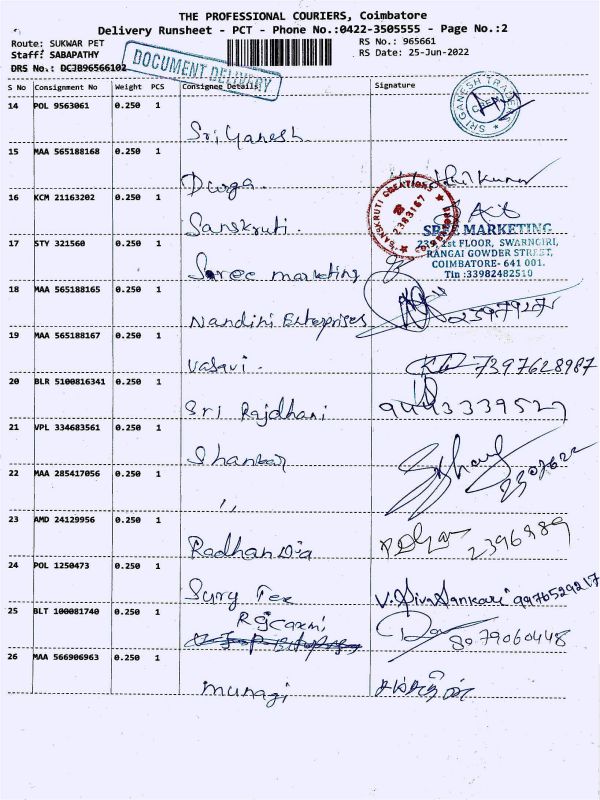 THE PROFESSIONAL COURIERS, Coimbatore
Delivery Runsheet - PCT - Phone No.:0422-3505555 - Page No.:2
Route: SUKWAR PET
Staff: SABAPATHY
DRS No.: DCJB96566102
RS No.: 965661
RS Date: 25-Jun-2022
DOCUMENT DELIVERY
S No Consignment No Weight PCS Consignee Details Signature
14 POL 9563061 0.250 1 Sri Ganesh
SRI GANESH TRA
15 MAA 565188168 0.250 1 Durga
16 KCM 21163202 0.250 1 Sanskruti
SANSKRUTI CREATIONS
2383167
17 STY 321560 0.250 1 Sree marketing
MARKETING
239, 1st FLOOR, SWARNGIRI,
RANGAI GOWDER STREET,
COIMBATORE- 641 001.
Tin :33982482510
18 MAA 565188165 0.250 1 Nandini Enterprises
19 MAA 565188167 0.250 1 Vasavi 7397628987
20 BLR 5100816341 0.250 1 Sri Rajdhani 9443339527
21 VPL 334683561 0.250 1 Shankar
22 MAA 285417056 0.250 1 ,,
23 AMD 24129956 0.250 1 2396889
24 POL 1250473 0.250 1 V. Sivasankari 9976529217
25 BLT 100081740 0.250 1 8079060448
26 MAA 566906963 0.250 1 munagi